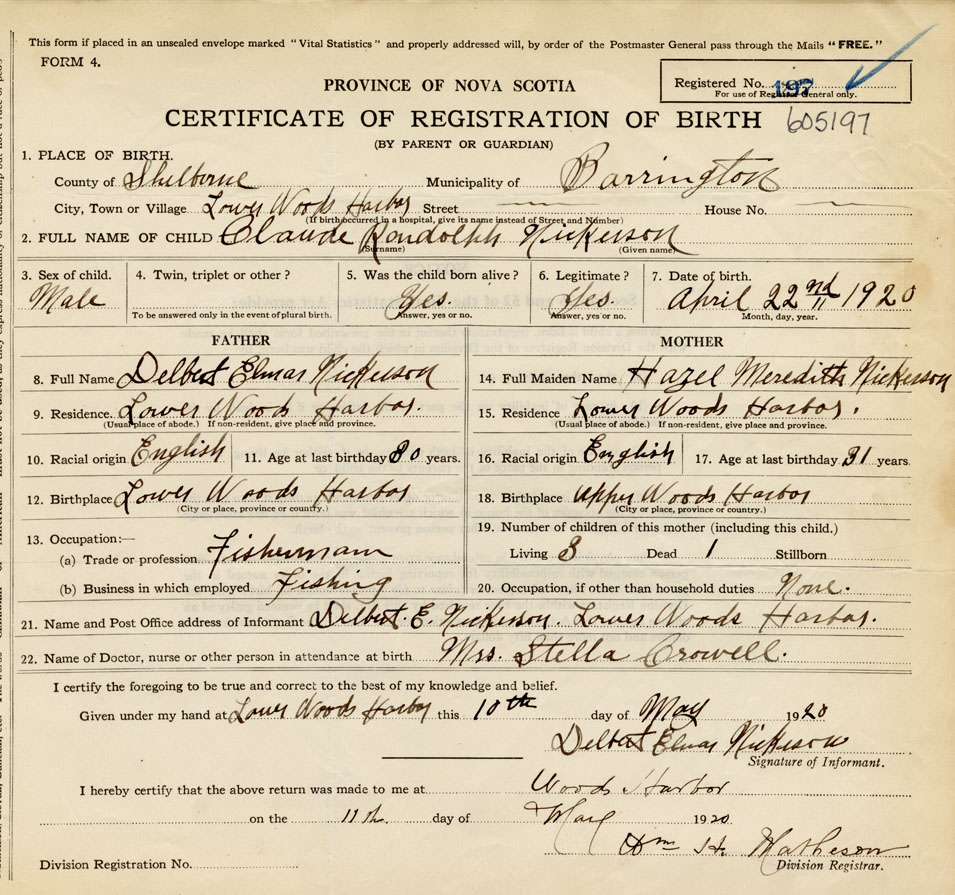 This form if placed in an unsealed envelope marked "Vital Statistics" and properly addressed will, by order of the Postmaster General pass through the Mails "FREE."
FORM 4.
PROVINCE OF NOVA SCOTIA
Registered No. 197
For use of Registrar General only.
CERTIFICATE OF REGISTRATION OF BIRTH 605197
(BY PARENT OR GUARDIAN)
1. PLACE OF BIRTH.
County of Shelborne Municipality of Barrington
City, Town or Village Lower Woods Harbor Street House No.
(If birth occurred in a hospital, give its name instead of Street and Number)
2. FULL NAME OF CHILD Claude Randolph Nickerson
(Surname) (Given name)
3. Sex of child. 4. Twin, triplet or other? 5. Was the child born alive? 6. Legitimate? 7. Date of birth.
Male Yes. Yes. April 22nd 1920
To be answered only in the event of plural birth. Answer, yes or no. Answer, yes or no. Month, day, year.
FATHER MOTHER
8. Full Name Delbert Elmas Nickerson 14. Full Maiden Name Hazel Meredith Nickerson
9. Residence. Lower Woods Harbor. 15. Residence Lower Woods Harbor.
(Usual place of abode.) If non-resident, give place and province. (Usual place of abode.) If non-resident, give place and province.
10. Racial origin English 11. Age at last birthday 30 years. 16. Racial origin English 17. Age at last birthday 31 years.
12. Birthplace Lower Woods Harbor 18. Birthplace Upper Woods Harbor
(City or place, province or country.) (City or place, province or country.)
13. Occupation:— 19. Number of children of this mother (including this child.)
(a) Trade or profession Fisherman Living 3 Dead 1 Stillborn
(b) Business in which employed Fishing 20. Occupation, if other than household duties None.
21. Name and Post Office address of Informant Delbert. E. Nickerson. Lower Woods Harbor.
22. Name of Doctor, nurse or other person in attendance at birth Mrs. Stella Crowell.
I certify the foregoing to be true and correct to the best of my knowledge and belief.
Given under my hand at Lower Woods Harbor this 10th day of May 1920
Delbert Elmas Nickerson
Signature of Informant.
I hereby certify that the above return was made to me at Woods Harbor
on the 11th. day of May 1920.
Wm H. Matheson
Division Registration No. Division Registrar.